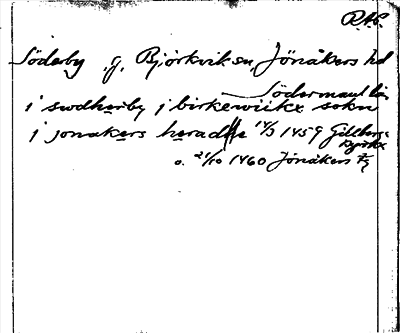 RAP.
Söderby, g, Björkviks sn, Jönåkers hd
Södermanl. län
i swdherby j birkewiikx sokn
j jonakers heradhe 14/3 1459 Gillberga
kyrka
o. 21/10 1460 Jönåkers tg